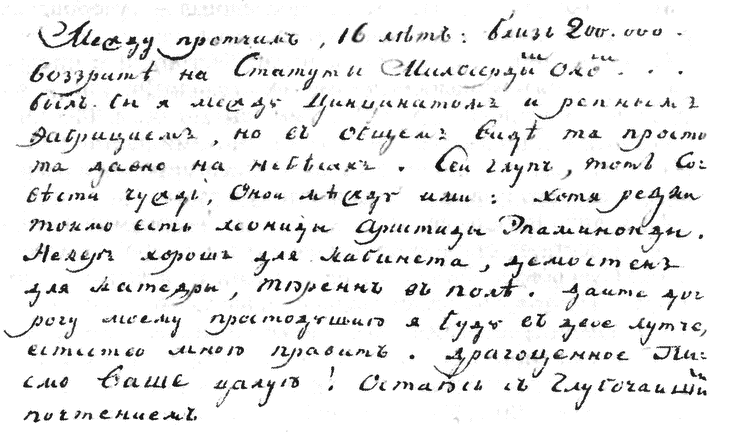 Между протчимъ, 16 лѣтъ: близь 200.000.
воззритѣ на Статуты Милосердій Охъ...
былъ бы я между Цинцинатомъ и репнымъ
Фабрициемъ, но въ общемъ видѣ та просто
та давно на небѣсахъ. Сей глупъ, тотъ Со-
вѣсти чуждъ, Оной мѣжду ими: хотя редки
токмо есть леониды Аристиды Эпаминонды.
Некеръ хорошъ для кабинета, демостенъ
для катедры, Тюреннъ въ полѣ. дайте дор-
рогу моему простодушию я буду въ двое лутче,
естество мною правитъ. драгоценное Пи-
смо Ваше цалую! Остаюсь съ Глубочайшій
почтениемъ